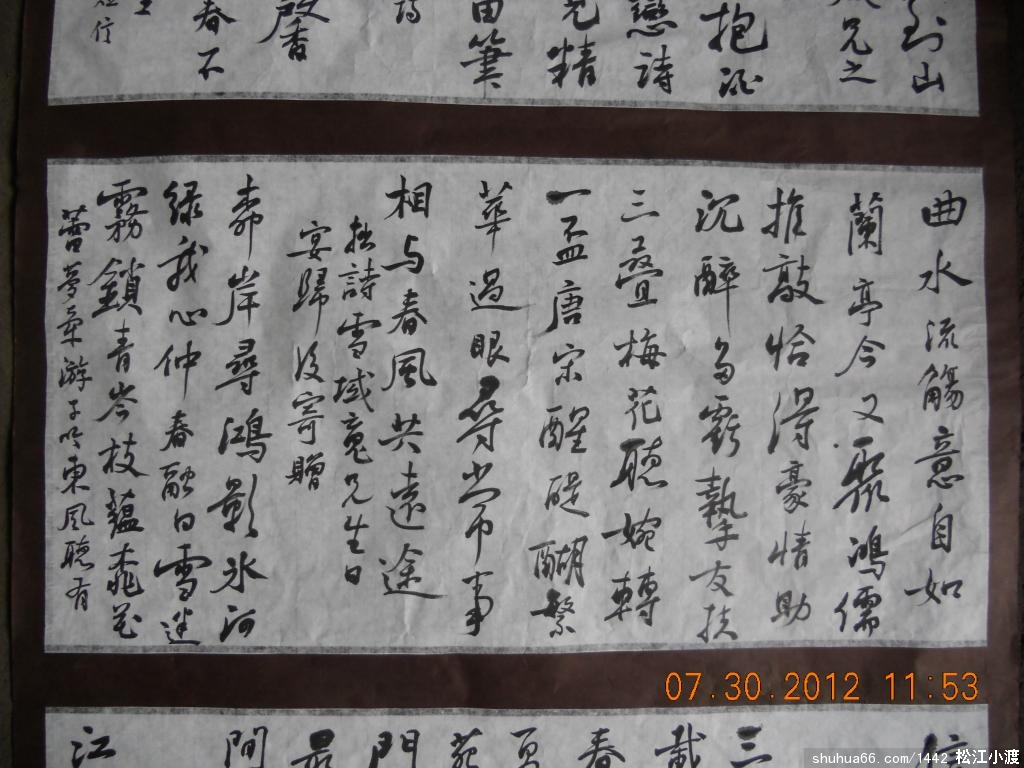 到山
兄之
抱
戀詩
兄精
筆
馨
春不
曲水流觴意自如
蘭亭今又聚鴻儒
推敲恰得豪情助
沉醉多虧摯友扶
三疊梅花聽婉轉
一盃唐宋醒醍醐繁
華過眼尋常事
相与春風共遠途
拙詩雪域兄生日
宴歸後寄贈
岸尋鴻影冰河
绿我心仲春融白雪迷
霧鎖青岑枝蘊桃花
蕾夢牽游子吟東風聽有
三
載
春
苑
門
最
間
江
07.30.2012 11:53
shuhua66.com/1442 松江小渡